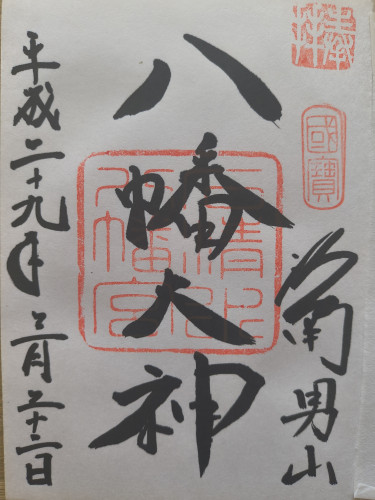 奉拝
國寶
洛南男山
八幡大神
石清水八幡宮
平成二十九年三月二十二日